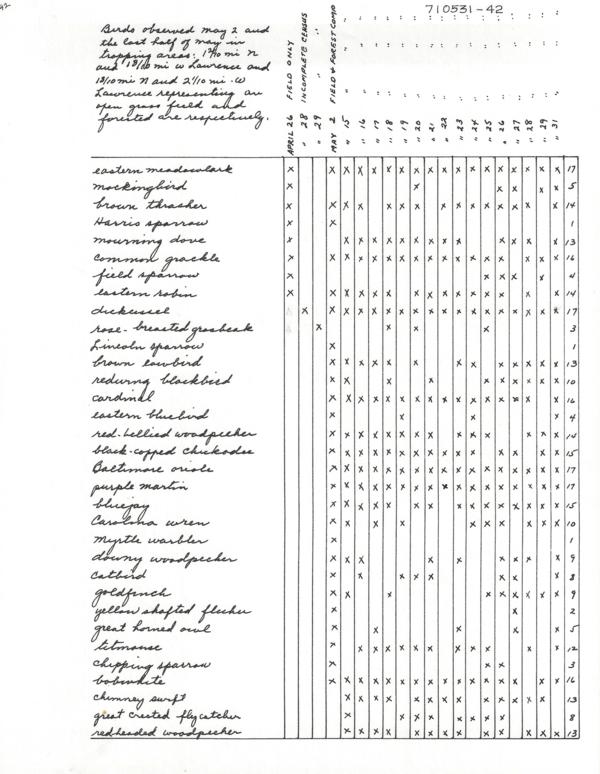 92
710531-42
Birds observed May 2 and
the last half of May in
trapping areas: 1 9/10 mi N
and 1 8/10 mi W Lawrence and
1 3/10 mi N and 2 1/10 mi. W
Lawrence representing an
open grass field and
forested are respectively.
APRIL 26 FIELD ONLY
" 28 INCOMPLETE CENSUS
" 29 " "
MAY 2 FIELD & FOREST COMP
" 15
" 16
" 17
" 18
" 19
" 20
" 21
" 22
" 23
" 24
" 25
" 26
" 27
" 28
" 29
" 31
eastern meadowlark 17
mockingbird 5
brown thrasher 14
Harris sparrow 1
mourning dove 13
common grackle 16
field sparrow 4
eastern robin 14
dickcissel 17
rose-breasted grosbeak 3
Lincoln sparrow 1
brown cowbird 13
redwing blackbird 10
cardinal 16
eastern bluebird 4
red-bellied woodpecker 14
black-capped chickadee 15
Baltimore oriole 17
purple martin 17
bluejay 15
Carolina wren 10
Myrtle warbler 1
downy woodpecker 9
catbird 8
goldfinch 9
yellow shafted flicker 2
great horned owl 5
titmouse 12
chipping sparrow 3
bobwhite 16
chimney swift 13
great crested flycatcher 8
redheaded woodpecker 13